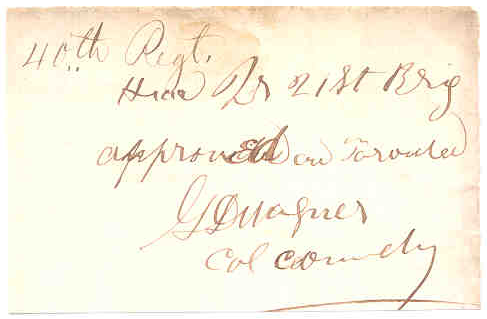 40th Regt.
Head Qrs 21st Brig
approved and Forwarded
G D Wagner
Col comdg